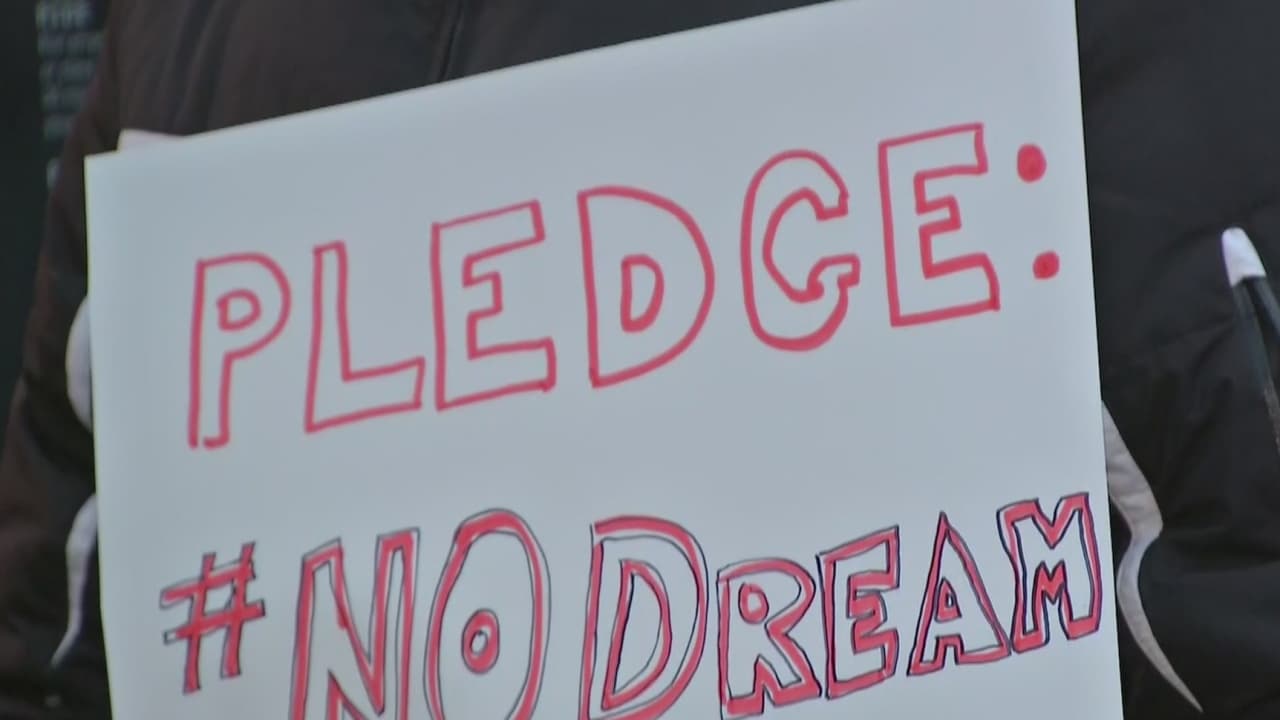 PLEDGE:
#NO DREAM